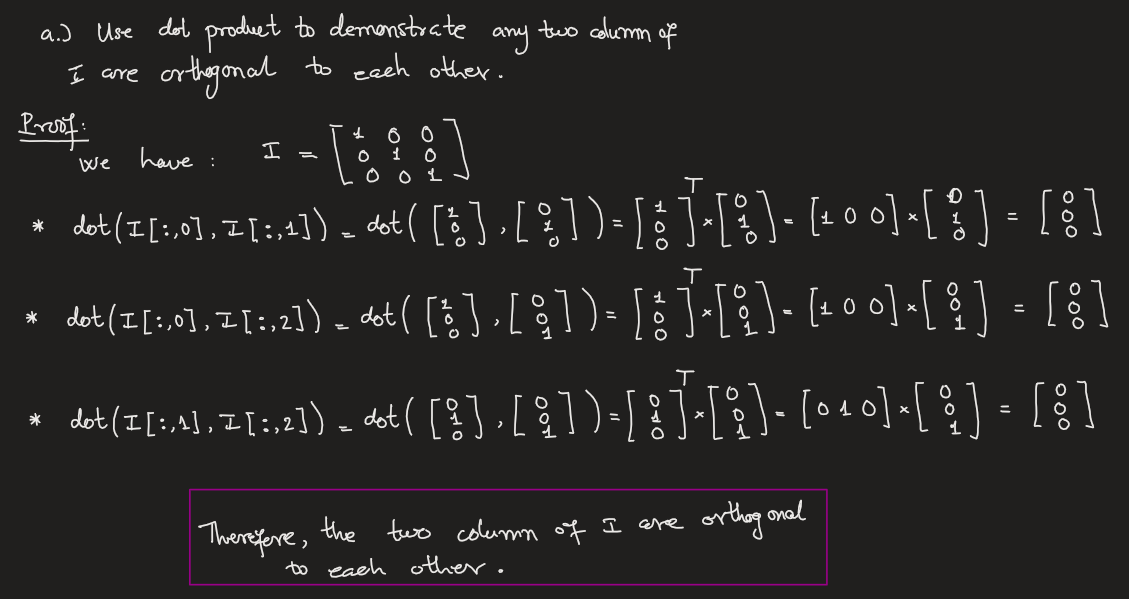 a.) Use dot product to demonstrate any two column of
I are orthogonal to each other.
Proof:
We have : I = [1 0 0; 0 1 0; 0 0 1]
* dot(I[:,0], I[:,1]) = dot([1 0 0], [0 1 0]) = [1 0 0]^T × [0 1 0] = [1 0 0] × [0 1 0] = [0 0 0]
* dot(I[:,0], I[:,2]) = dot([1 0 0], [0 0 1]) = [1 0 0]^T × [0 0 1] = [1 0 0] × [0 0 1] = [0 0 0]
* dot(I[:,1], I[:,2]) = dot([0 1 0], [0 0 1]) = [0 1 0]^T × [0 0 1] = [0 1 0] × [0 0 1] = [0 0 0]
Therefore, the two column of I are orthogonal
to each other.